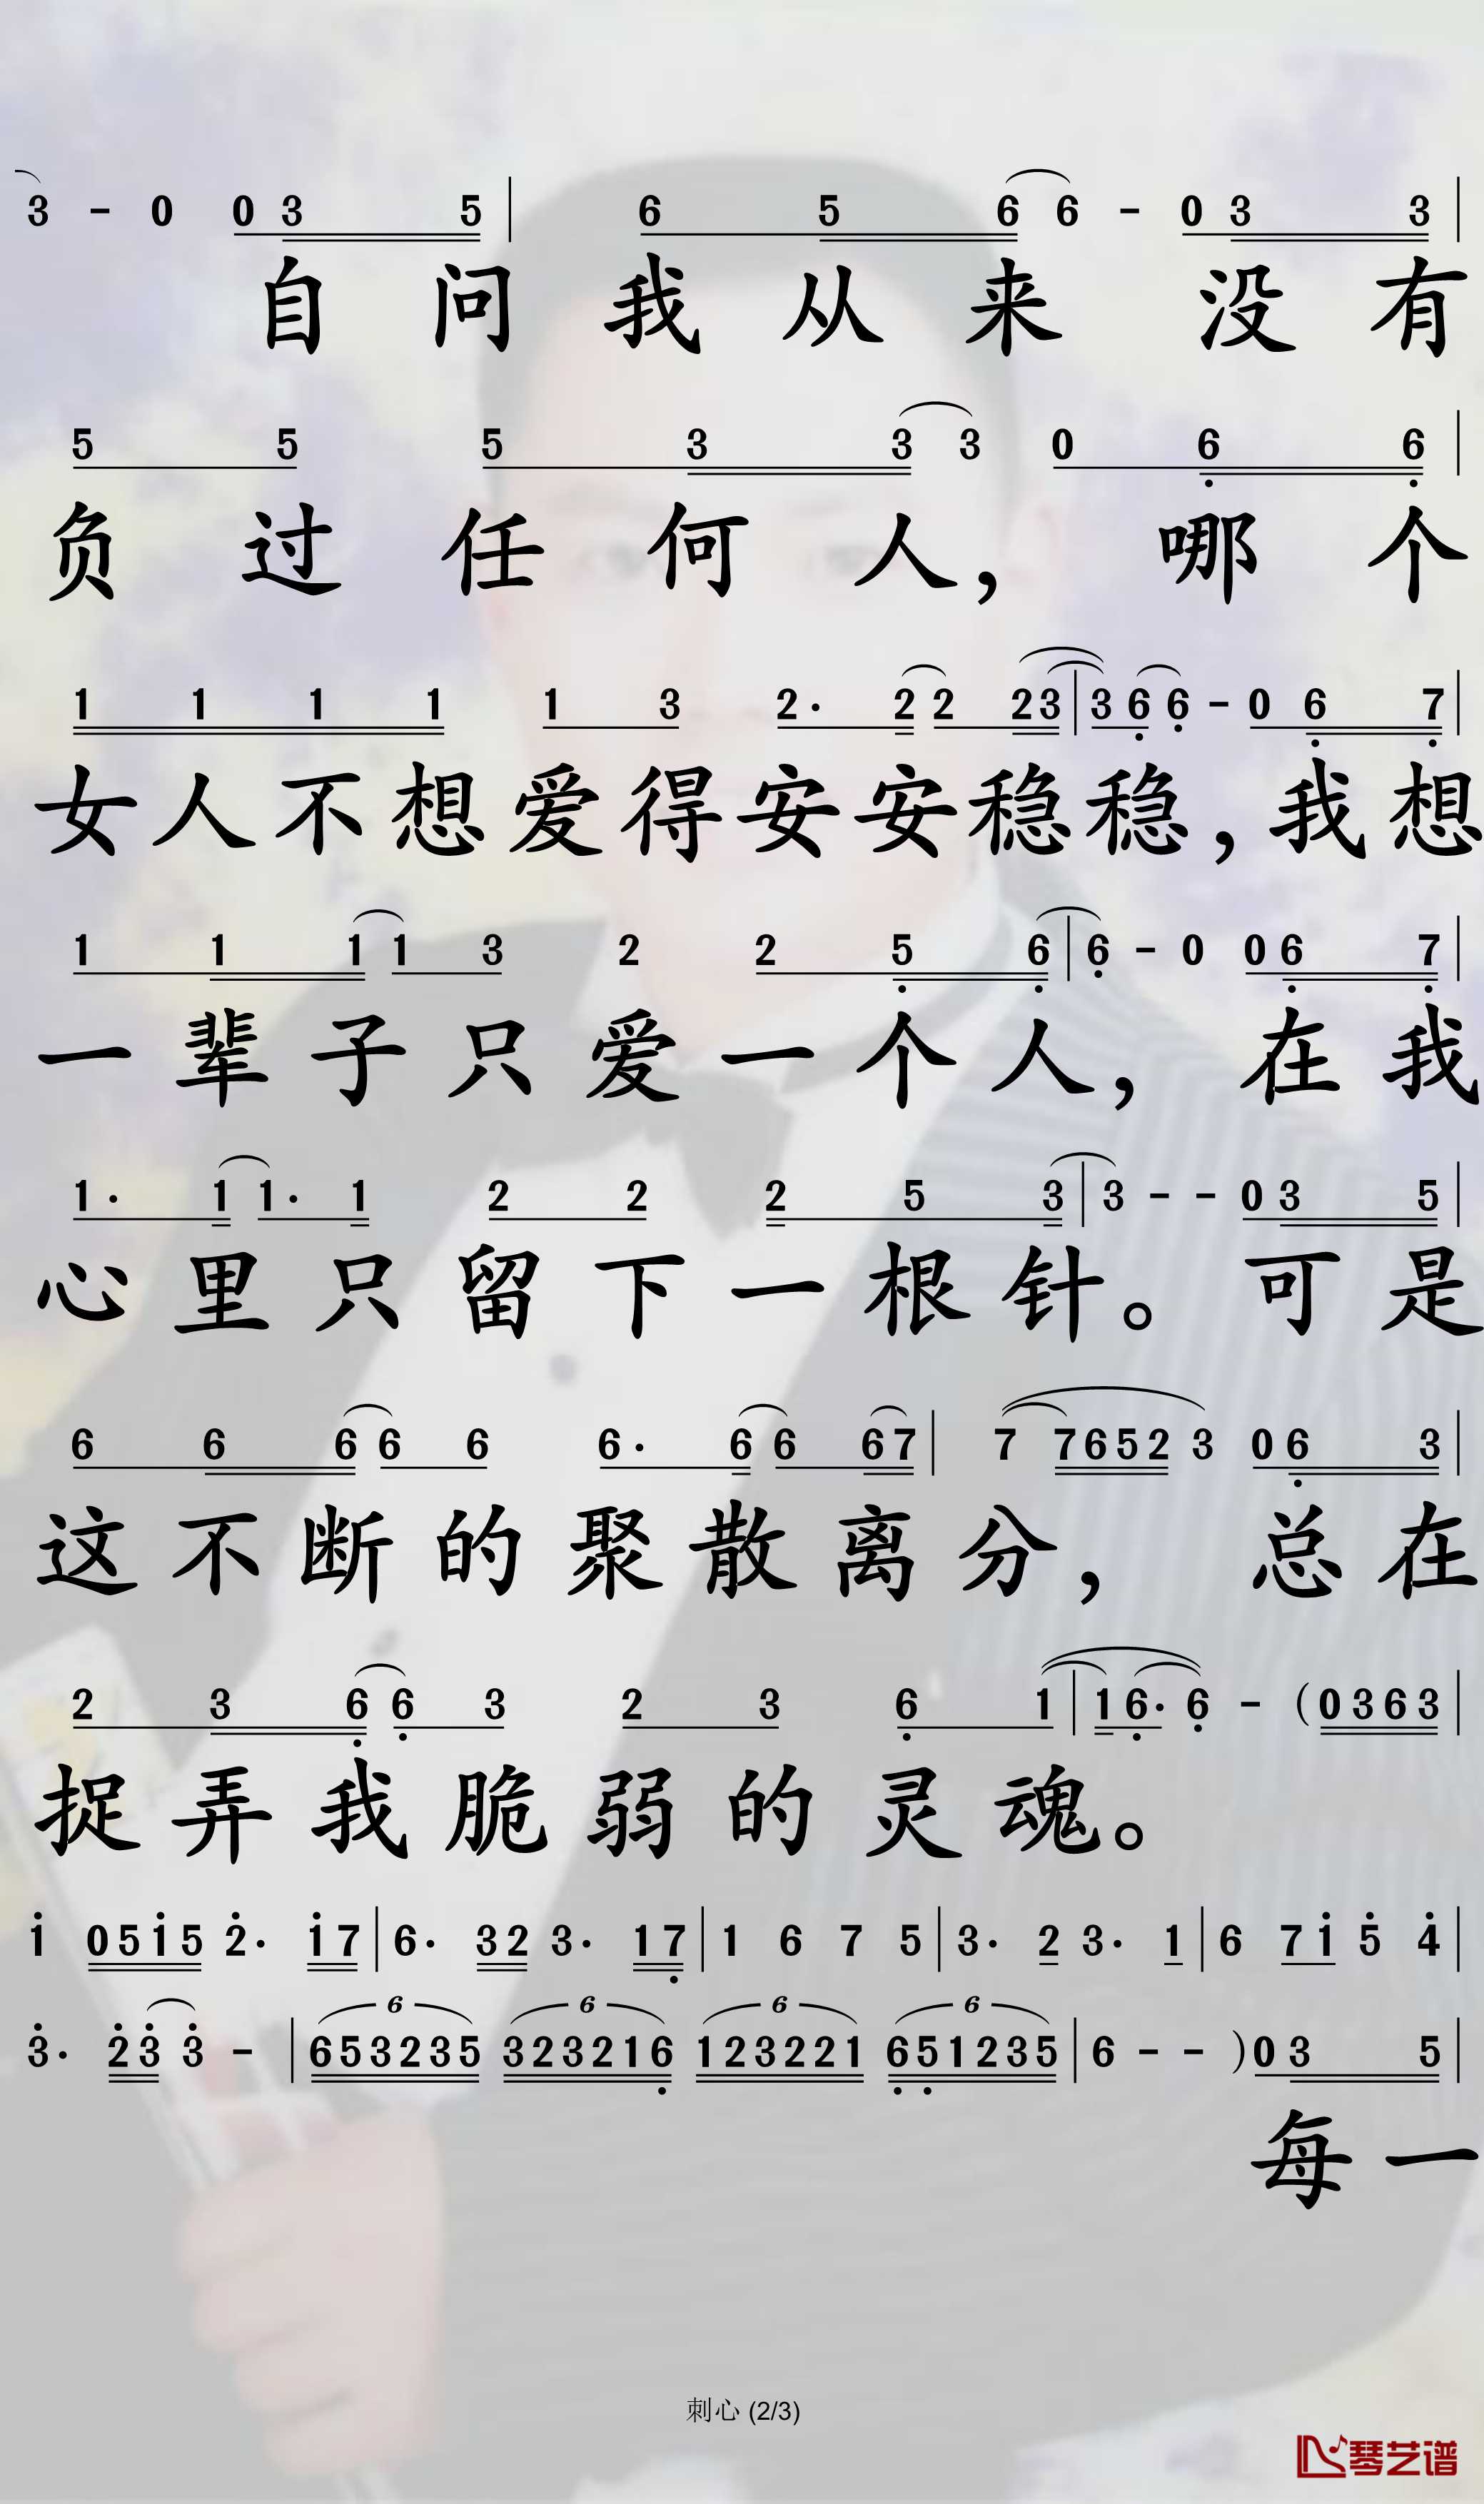 3 - 0 0 3 5 | 6 5 6 6 - 0 3 3 |
自问我从来没有
5 5 5 3 3 3 0 6 6 |
负过任何人，哪个
1 1 1 1 1 3 2· 2 2 2 3 | 3 6 6 - 0 6 7 |
女人不想爱得安安稳稳，我想
1 1 1 1 3 2 2 5 6 | 6 - 0 0 6 7 |
一辈子只爱一个人，在我
1· 1 1· 1 2 2 2 5 3 | 3 - - 0 3 5 |
心里只留下一根针。可是
6 6 6 6 6 6· 6 6 6 7 | 7 7 6 5 2 3 0 6 3 |
这不断的聚散离分，总在
2 3 6 6 3 2 3 6 1 | 1 6· 6 - (0 3 6 3 |
捉弄我脆弱的灵魂。
1 0 5 1 5 2· 1 7 | 6· 3 2 3· 1 7 | 1 6 7 5 | 3· 2 3· 1 | 6 7 1 5 4 |
3· 2 3 3 - | 6 5 3 2 3 5 3 2 3 2 1 6 1 2 3 2 2 1 6 5 1 2 3 5 | 6 - - ) 0 3 5 |
6 6 6 6
每一
刺心 (2/3)
琴艺谱